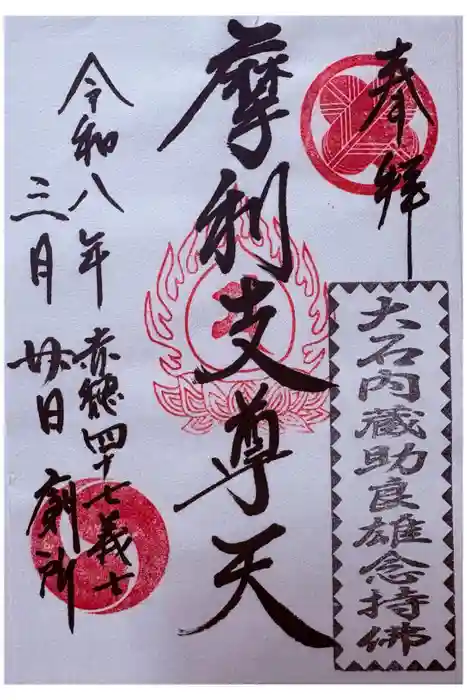 奉拝
大石内蔵助良雄念持佛
摩利支尊天
赤穂四十七義士廟所
令和八年
三月廿日